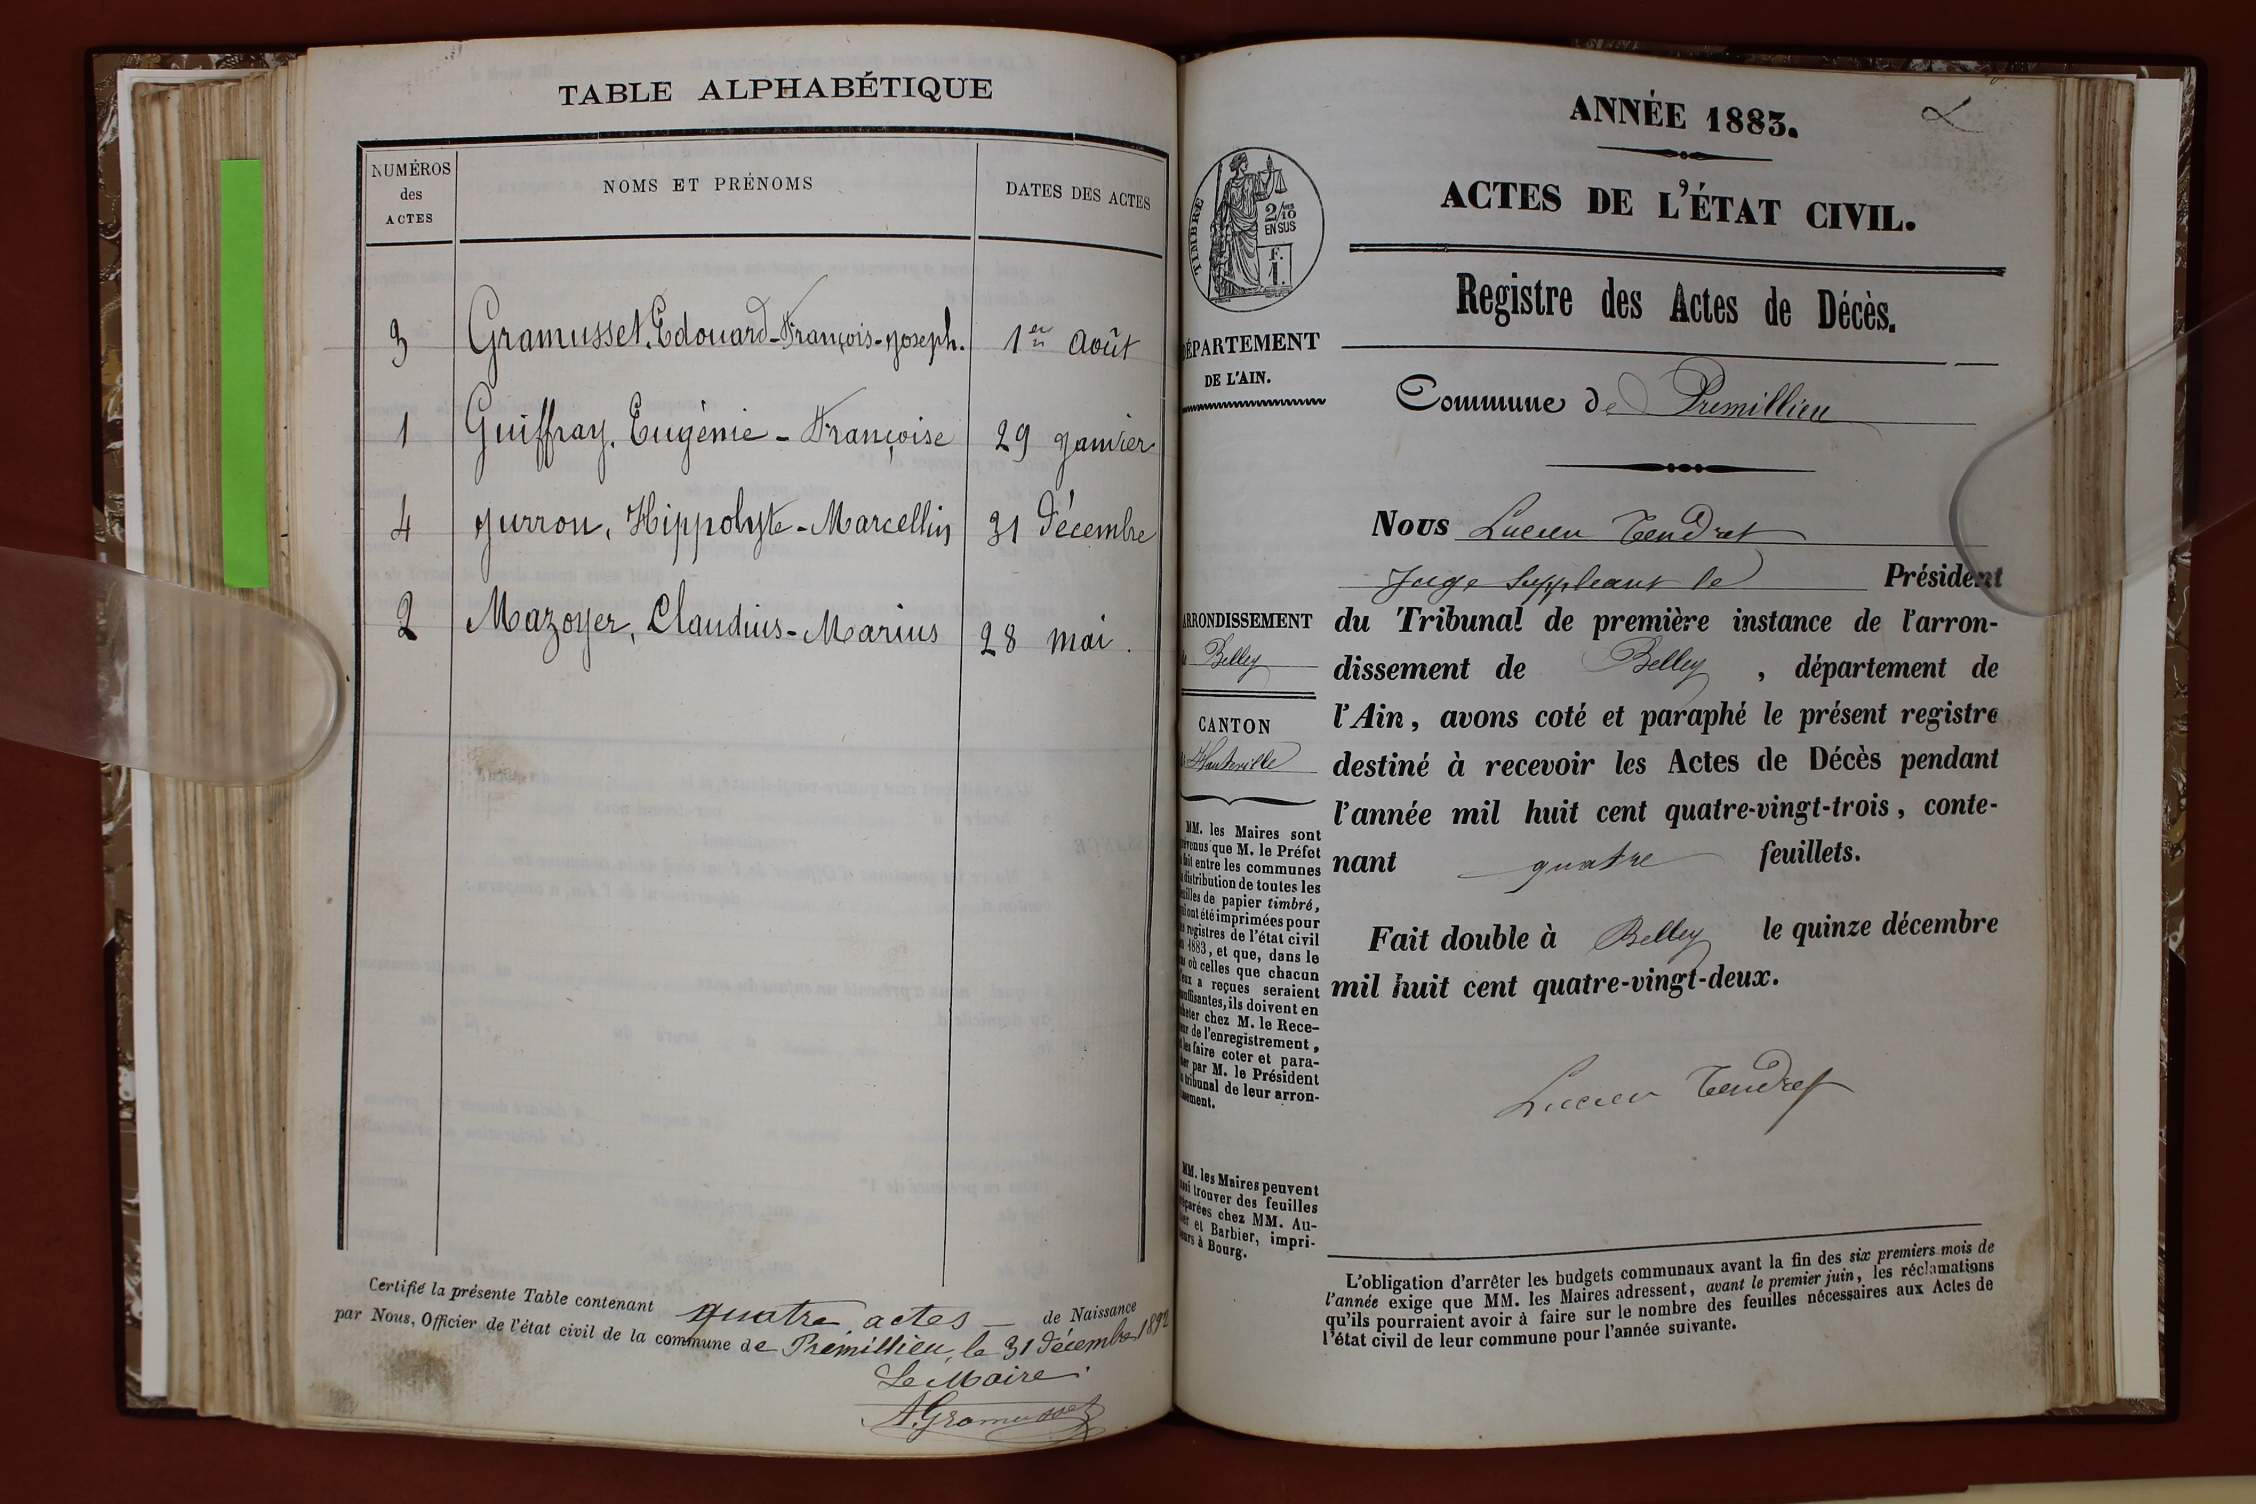 TABLE ALPHABÉTIQUE
NUMÉROS
des
ACTES
NOMS ET PRÉNOMS
DATES DES ACTES
3 Gramusset, Edouard-François-Joseph. 1er août
1 Guiffray, Eugénie-Françoise 29 janvier
4 Jurron, Hippolyte-Marcellin 31 Décembre
2 Mazoyer, Claudius-Marius 28 mai.
Certifié la présente Table contenant quatre actes — de Naissance
par Nous, Officier de l'état civil de la commune de Prémillieu, le 31 Décembre 1892
Le Maire
A. Gramusset
ANNÉE 1883.
ACTES DE L'ÉTAT CIVIL.
Registre des Actes de Décès.
Commune de Premillieu
TIMBRE
2/10
EN SUS
F.
1.
DÉPARTEMENT
DE L'AIN.
ARRONDISSEMENT
de Belley
CANTON
de Hauteville
MM. les Maires sont
prévenus que M. le Préfet
a fait entre les communes
la distribution de toutes les
feuilles de papier timbré,
qui ont été imprimées pour
les registres de l'état civil
en 1883, et que, dans le
cas où celles que chacun
d'eux a reçues seraient
insuffisantes, ils doivent en
acheter chez M. le Rece-
veur de l'enregistrement,
et les faire coter et para-
pher par M. le Président
du tribunal de leur arron-
dissement.
MM. les Maires peuvent
aussi trouver des feuilles
préparées chez MM. Au-
et Barbier, impri-
meurs à Bourg.
Nous Lucien Tendret
Juge Suppléant le Président
du Tribunal de première instance de l'arron-
dissement de Belley, département de
l'Ain, avons coté et paraphé le présent registre
destiné à recevoir les Actes de Décès pendant
l'année mil huit cent quatre-vingt-trois, conte-
nant quatre feuillets.
Fait double à Belley le quinze décembre
mil huit cent quatre-vingt-deux.
Lucien Tendret
L'obligation d'arrêter les budgets communaux avant la fin des six premiers mois de
l'année exige que MM. les Maires adressent, avant le premier juin, les réclamations
qu'ils pourraient avoir à faire sur le nombre des feuilles nécessaires aux Actes de
l'état civil de leur commune pour l'année suivante.